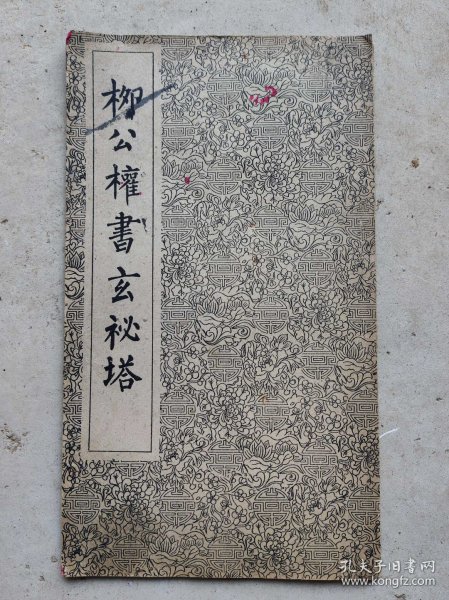 柳公權書玄祕塔
孔夫子旧书网
www.kongfz.com